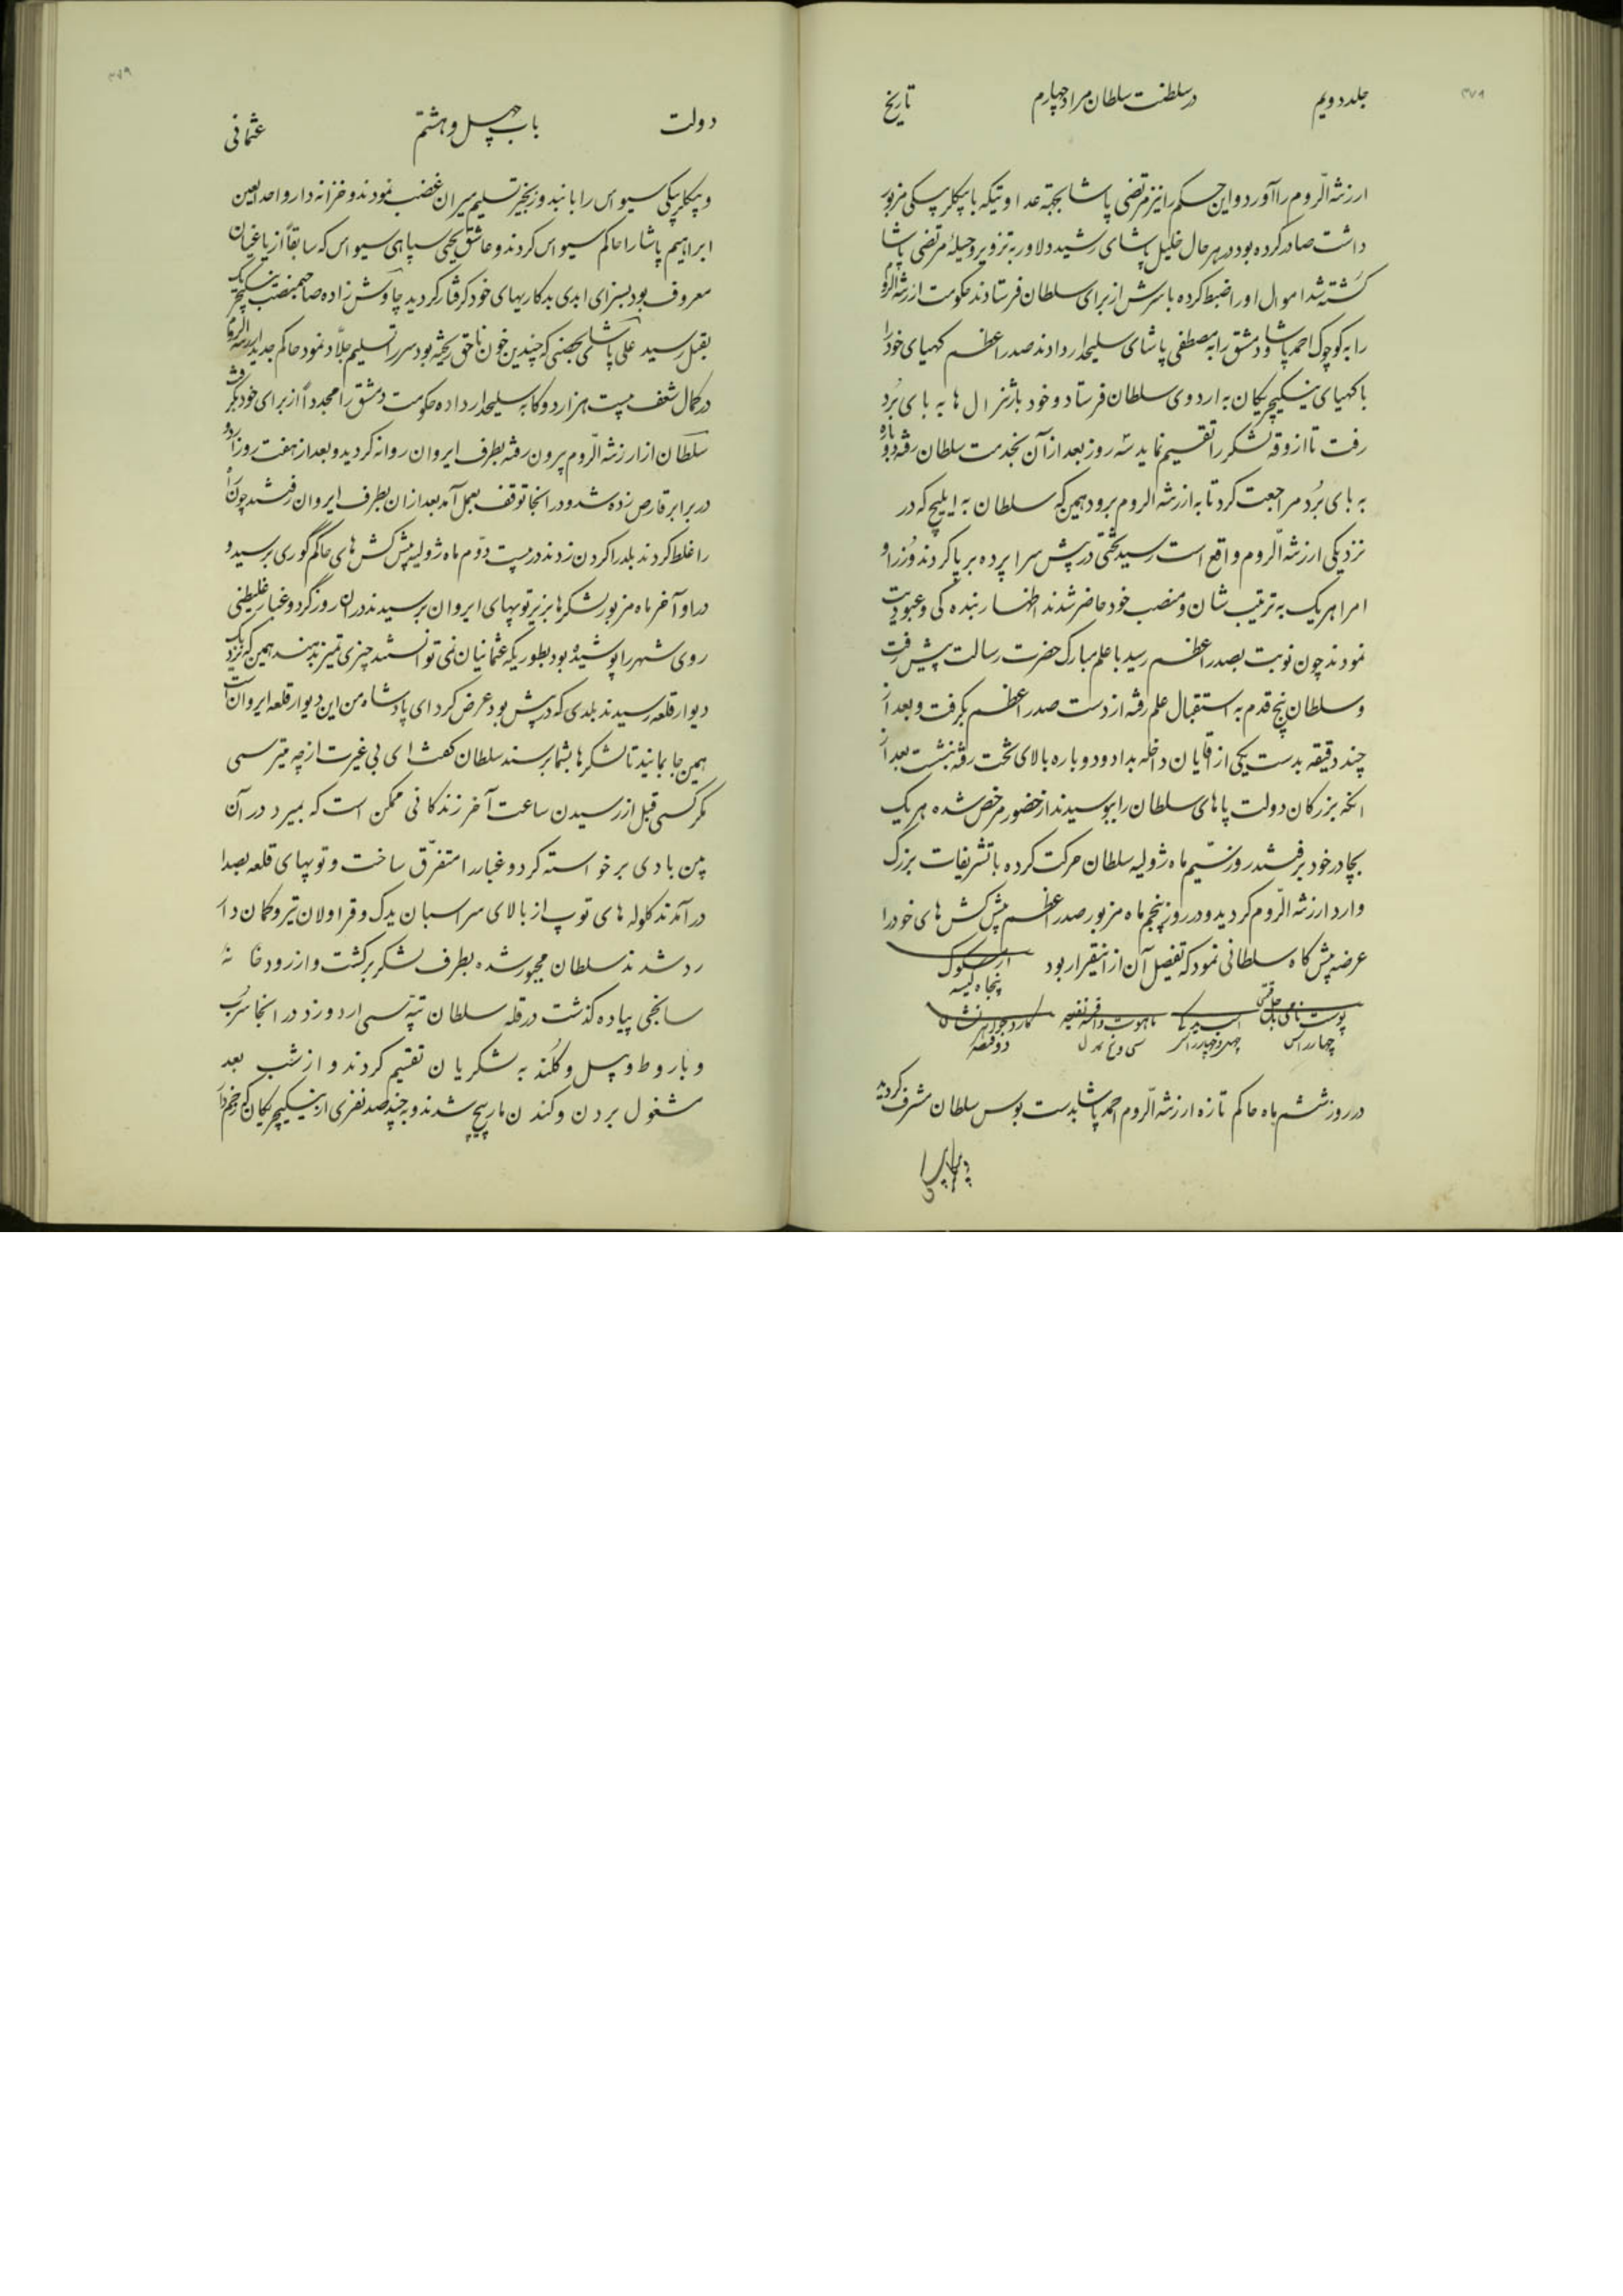 جلد دویم در سلطنت سلطان مراد چهارم تاریخ
ارزنة الروم را آورد و این حکم را نیز مرتضی پاشا بجهة عداوتیکه با بیکلر بیکی مزبور
داشت صادر کرده بود در هر حال خلیل پاشای رشید دلاور به تزویر و حیلۀ مرتضی پاشا
کشته شد اموال او را ضبط کرده با سرش از برای سلطان فرستادند حکومت ارزنة الروم
را به کوچوک احمد پاشا و دمشق را به مصطفی پاشای سلیحدار دادند صدر اعظم کهیای خود را
با کهیای ینیکیچریکان به اردوی سلطان فرستاد و خود با ژنرال ها به بای برد
رفت تا ازوقۀ لشکر را تقسیم نماید سه روز بعد از آن بخدمت سلطان رفته دوباره
به بای برد مراجعت کرد تا به ارزنة الروم برود همین که سلطان به ایلیج که در
نزدیکی ارزنة الروم واقع است رسید تختی در پیش سرا پرده بر پا کردند وزرا و
امرا هر یک به ترتیب شان و منصب خود حاضر شدند اظهار بنده کی و عبودیت
نمودند چون نوبت بصدر اعظم رسید با علم مبارک حضرت رسالت پیش رفت
و سلطان پنج قدم به استقبال علم رفته از دست صدر اعظم بگرفت و بعد از
چند دقیقه بدست یکی از اقایان داخله بداد و دوباره بالای تخت رفته بنشست بعد از
انکه بزرکان دولت پاهای سلطان را ببوسیدند از حضور مرخص شده هر یک
بچادر خود برفتند روز سیم ماه ژولیه سلطان حرکت کرده با تشریفات بزرگ
وارد ارزنة الروم کردید و در روز پنجم ماه مزبور صدر اعظم پیش کش های خود را
عرضه پیش کاه سلطانی نمود که تفصیل آن از اینقرار بود
پنجاه کیسه
در روز ششم ماه حاکم تازه ارزنة الروم احمد پاشا بدست بوس سلطان مشرف کردید
دولت باب چهل و هشتم عثمانی
و بیکلر بیکی سیواس را با بند و زنجیر تسلیم میران غضب نمودند و خزانه دار واحد العین
ابراهیم پاشا را حاکم سیواس کردند و عاشق یحیی سپاهی سیواس که سابقاً از یاغیان
معروف بود بسزای ابدی بدکاریهای خود کرفتار کردید چاوش زاده صاحبمنصب ینیکیچریک
بقتل رسید علی پاشای که چندین خون ناحق ریخته بود سر را تسلیم جلاد نمود حاکم جدید ارزنة الروم
در کمال شعف بیست هزار دوکا به سلیحدار داده حکومت دمشق را مجدداً از برای خود بگرفت
سلطان از ارزنة الروم بیرون رفته بطرف ایروان روانه کردید و بعد از هفت روز اردو
در برابر قارص زده شد و در انجا توقف بعمل آمد بعد از ان بطرف ایروان رفتند چون راه
را غلط کردند بلد را کردن زدند در بیست دوم ماه ژولیه پیش کش های حاکم گوری برسید و
در اواخر ماه مزبور لشکرها بزیر توپهای ایروان برسیدند در ان روز گرد و غبار غلیظی
روی شهر را پوشیده بود بطوریکه عثمانیان نمی توانستند چیزی تمیز بدهند همین که نزدیک
دیوار قلعه رسیدند بلدی که در پیش بود عرض کرد ای پادشاه من این دیوار قلعه ایروان است
همین جا بمانید تا لشکرها بشما برسند سلطان گفت ای بی غیرت از چه میترسی
مکر کسی قبل از رسیدن ساعت آخر زندکانی ممکن است که بمیرد در آن
بین بادی برخواسته گرد و غبار را متفرق ساخت و توپهای قلعه بصدا
در آمدند کلوله های توپ از بالای سر اسبان یدک و قراولان تیر و کمان دار
رد شدند سلطان مجبور شده بطرف لشکر برکشت و از رود خانۀ
سانجی پیاده کذشت در قلۀ سلطان تپه سی اردو زد در انجا سرب
و باروط و بیل و کلند به لشکریان تقسیم کردند و از شب بعد
مشغول بردن و کندن مارپیچ شدند و به چند صد نفری از ینیکیچریکان که زخم دار